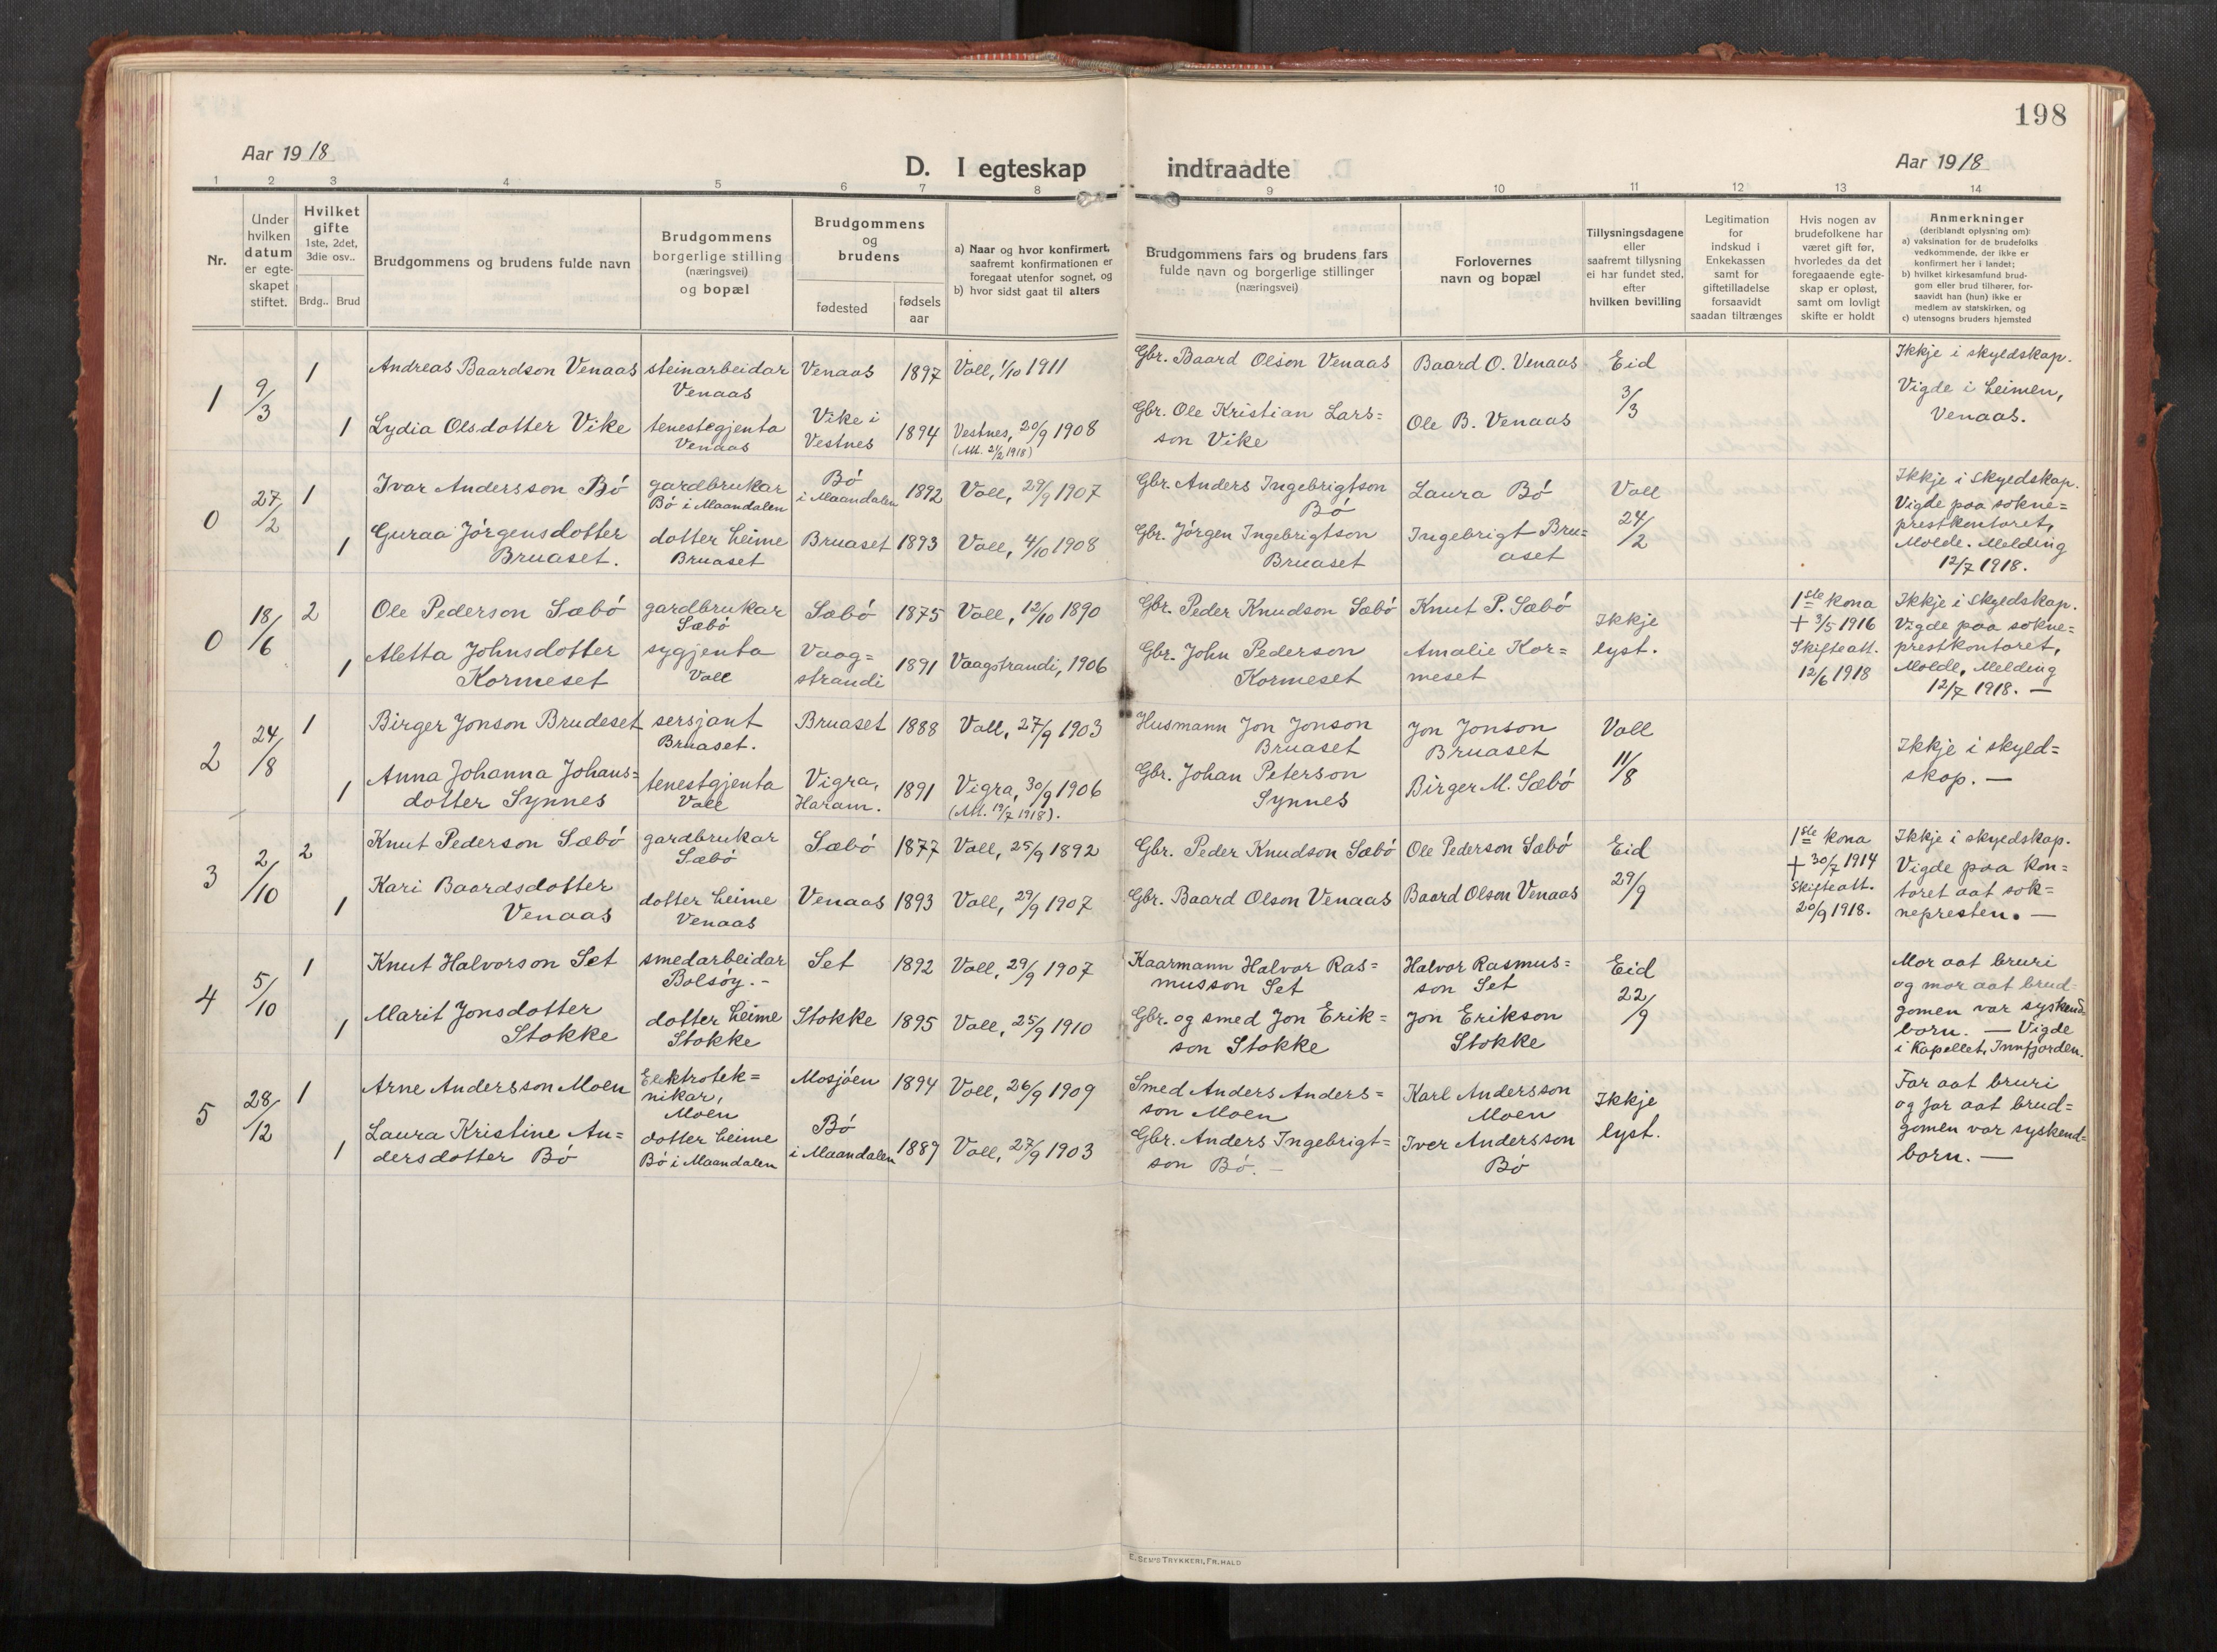 198
Aar 1918
D. I egteskap indtraadte
Aar 1918
1 2 3 4 5 6 7 8 9 10 11 12 13 14
Nr.
Under
hvilken
datum
er egte-
skapet
stiftet.
Hvilket
gifte
1ste, 2det,
3die osv..
Brdg.. Brud
Brudgommens og brudens fulde navn
Brudgommens
borgerlige stilling
(næringsvei)
og bopæl
Brudgommens
og
brudens
fødested
fødsels
aar
a) Naar og hvor konfirmert,
saafremt konfirmationen er
foregaat utenfor sognet, og
b) hvor sidst gaat til alters
Brudgommens fars og brudens fars
fulde navn og borgerlige stillinger
(næringsvei)
Forlovernes
navn og bopæl
Tillysningsdagene
eller
saafremt tillysning
ei har fundet sted,
efter
hvilken bevilling
Legitimation
for
indskud i
Enkekassen
samt for
giftetilladelse
forsaavidt
saadan tiltrænges
Hvis nogen av
brudefolkene har
været gift før,
hvorledes da det
foregaaende egte-
skap er opløst,
samt om lovligt
skifte er holdt
Anmerkninger
(deriblandt oplysning om):
a) vaksination for de brudefolks
vedkommende, der ikke er
konfirmert her i landet;
b) hvilket kirkesamfund brud-
gom eller brud tilhører, for-
saavidt han (hun) ikke er
medlem av statskirken, og
c) utensogns bruders hjemsted
1
9/3
1
Andreas Baardson Venaas
steinarbeidar
Venaas
Venaas
1897
Voll, 1/10 1911
Gbr. Baard Olson Venaas
Baard O. Venaas
Eid
3/3
Ikkje i skyldskap.
Vigde i heimen,
Venaas.
1
Lydia Olsdotter Vike
tenestegjenta
Venaas
Vike i
Vestnes
1894
Vestnes, 20/9 1908
(Att. 21/2 1918)
Gbr. Ole Kristian Lars=
son Vike
Ole B. Venaas
0
27/2
1
Ivar Andersson Bó
gardbrukar
Bó i Maandalen
Bó
i Maandalen
1892
Voll, 29/9 1907
Gbr. Anders Ingebrigtson
Bó
Laura Bó
Voll
24/2
Ikkje i skyldskap.
Vigde paa sokne=
prestkontoret,
Molde. Melding
12/7 1918.
1
Guraa Jórgensdotter
Bruaset.
dotter heime
Bruaset
Bruaset
1893
Voll, 4/10 1908
Gbr. Jórgen Ingebrigtson
Bruaset
Ingebrigt Bru=
aset
0
18/6
2
Ole Pederson Sæbó
gardbrukar
Sæbó
Sæbó
1875
Voll, 12/10 1890
Gbr. Peder Knudson Sæbó
Knut P. Sæbó
Ikkje
lyst.
1ste kona
+ 3/5 1916
Skifteatt.
12/6 1918
Ikkje i skyldskap.
Vigde paa sokne=
prestkontoret,
Molde, Melding
12/7 1918. —
1
Aletta Johnsdotter
Kormeset
sygjenta
Voll
Vaag=
strandi
1891
Vaagstrandi, 1906
Gbr. John Pederson
Kormeset
Amalie Kor=
meset
2
24/8
1
Birger Jonson Brudeset
sersjant
Bruaset.
Bruaset
1888
Voll, 27/9 1903
Husmann Jon Jonson
Bruaset
Jon Jonson
Bruaset
Voll
11/8
Ikkje i skyld=
skap. —
1
Anna Johanna Johans=
dotter Synnes
tenestgjenta
Voll
Vigra,
Haram.
1891
Vigra, 30/9 1906
(Att. 19/7 1918).
Gbr. Johan Peterson
Synnes
Birger M. Sæbó
3
2/10
2
Knut Pederson Sæbó
gardbrukar
Sæbó
Sæbó
1877
Voll, 25/9 1892
Gbr. Peder Knudson Sæbó
Ole Pederson Sæbó
Eid
29/9
1ste kona
+ 30/7 1914
Skifteatt.
20/9 1918.
Ikkje i skyldskap.
Vigde paa kon=
toret aat sok=
nepresten. —
1
Kari Baardsdotter
Venaas
dotter heime
Venaas
Venaas
1893
Voll, 29/9 1907
Gbr. Baard Olson Venaas
Baard Olson Venaas
4
5/10
1
Knut Halvorson Set
smedarbeidar
Bolsöy.-
Set
1892
Voll, 29/9 1907
Kaarmann Halvor Ras=
musson Set
Halvor Rasmus=
son Set
Eid
22/9
Mor aat bruri
og mor aat brud=
gomen var syskend=
born. — Vigde
i Kapellet, Innfjorden.
1
Marit Jonsdotter
Stokke
dotter heime
Stokke
Stokke
1895
Voll, 25/9 1910
Gbr. og smed Jon Erik=
son Stokke
Jon Erikson
Stokke
5
28/12
1
Arne Andersson Moen
Elektrotek=
nikar,
Moen
Mosjóen
1894
Voll, 26/9 1909
Smed Anders Anders=
son Moen
Karl Andersson
Moen
Ikkje
lyst.
Far aat bruri
og far aat brud=
gomen var syskend=
born. —
1
Laura Kristine An=
dersdotter Bó
dotter heime
Bó i Maandalen
Bó
i Maandalen
1889
Voll, 27/9 1903
Gbr. Anders Ingebrigt=
son Bó. -
Iver Andersson
Bó
E. SEM'S TRYKKERI, FR. HALD